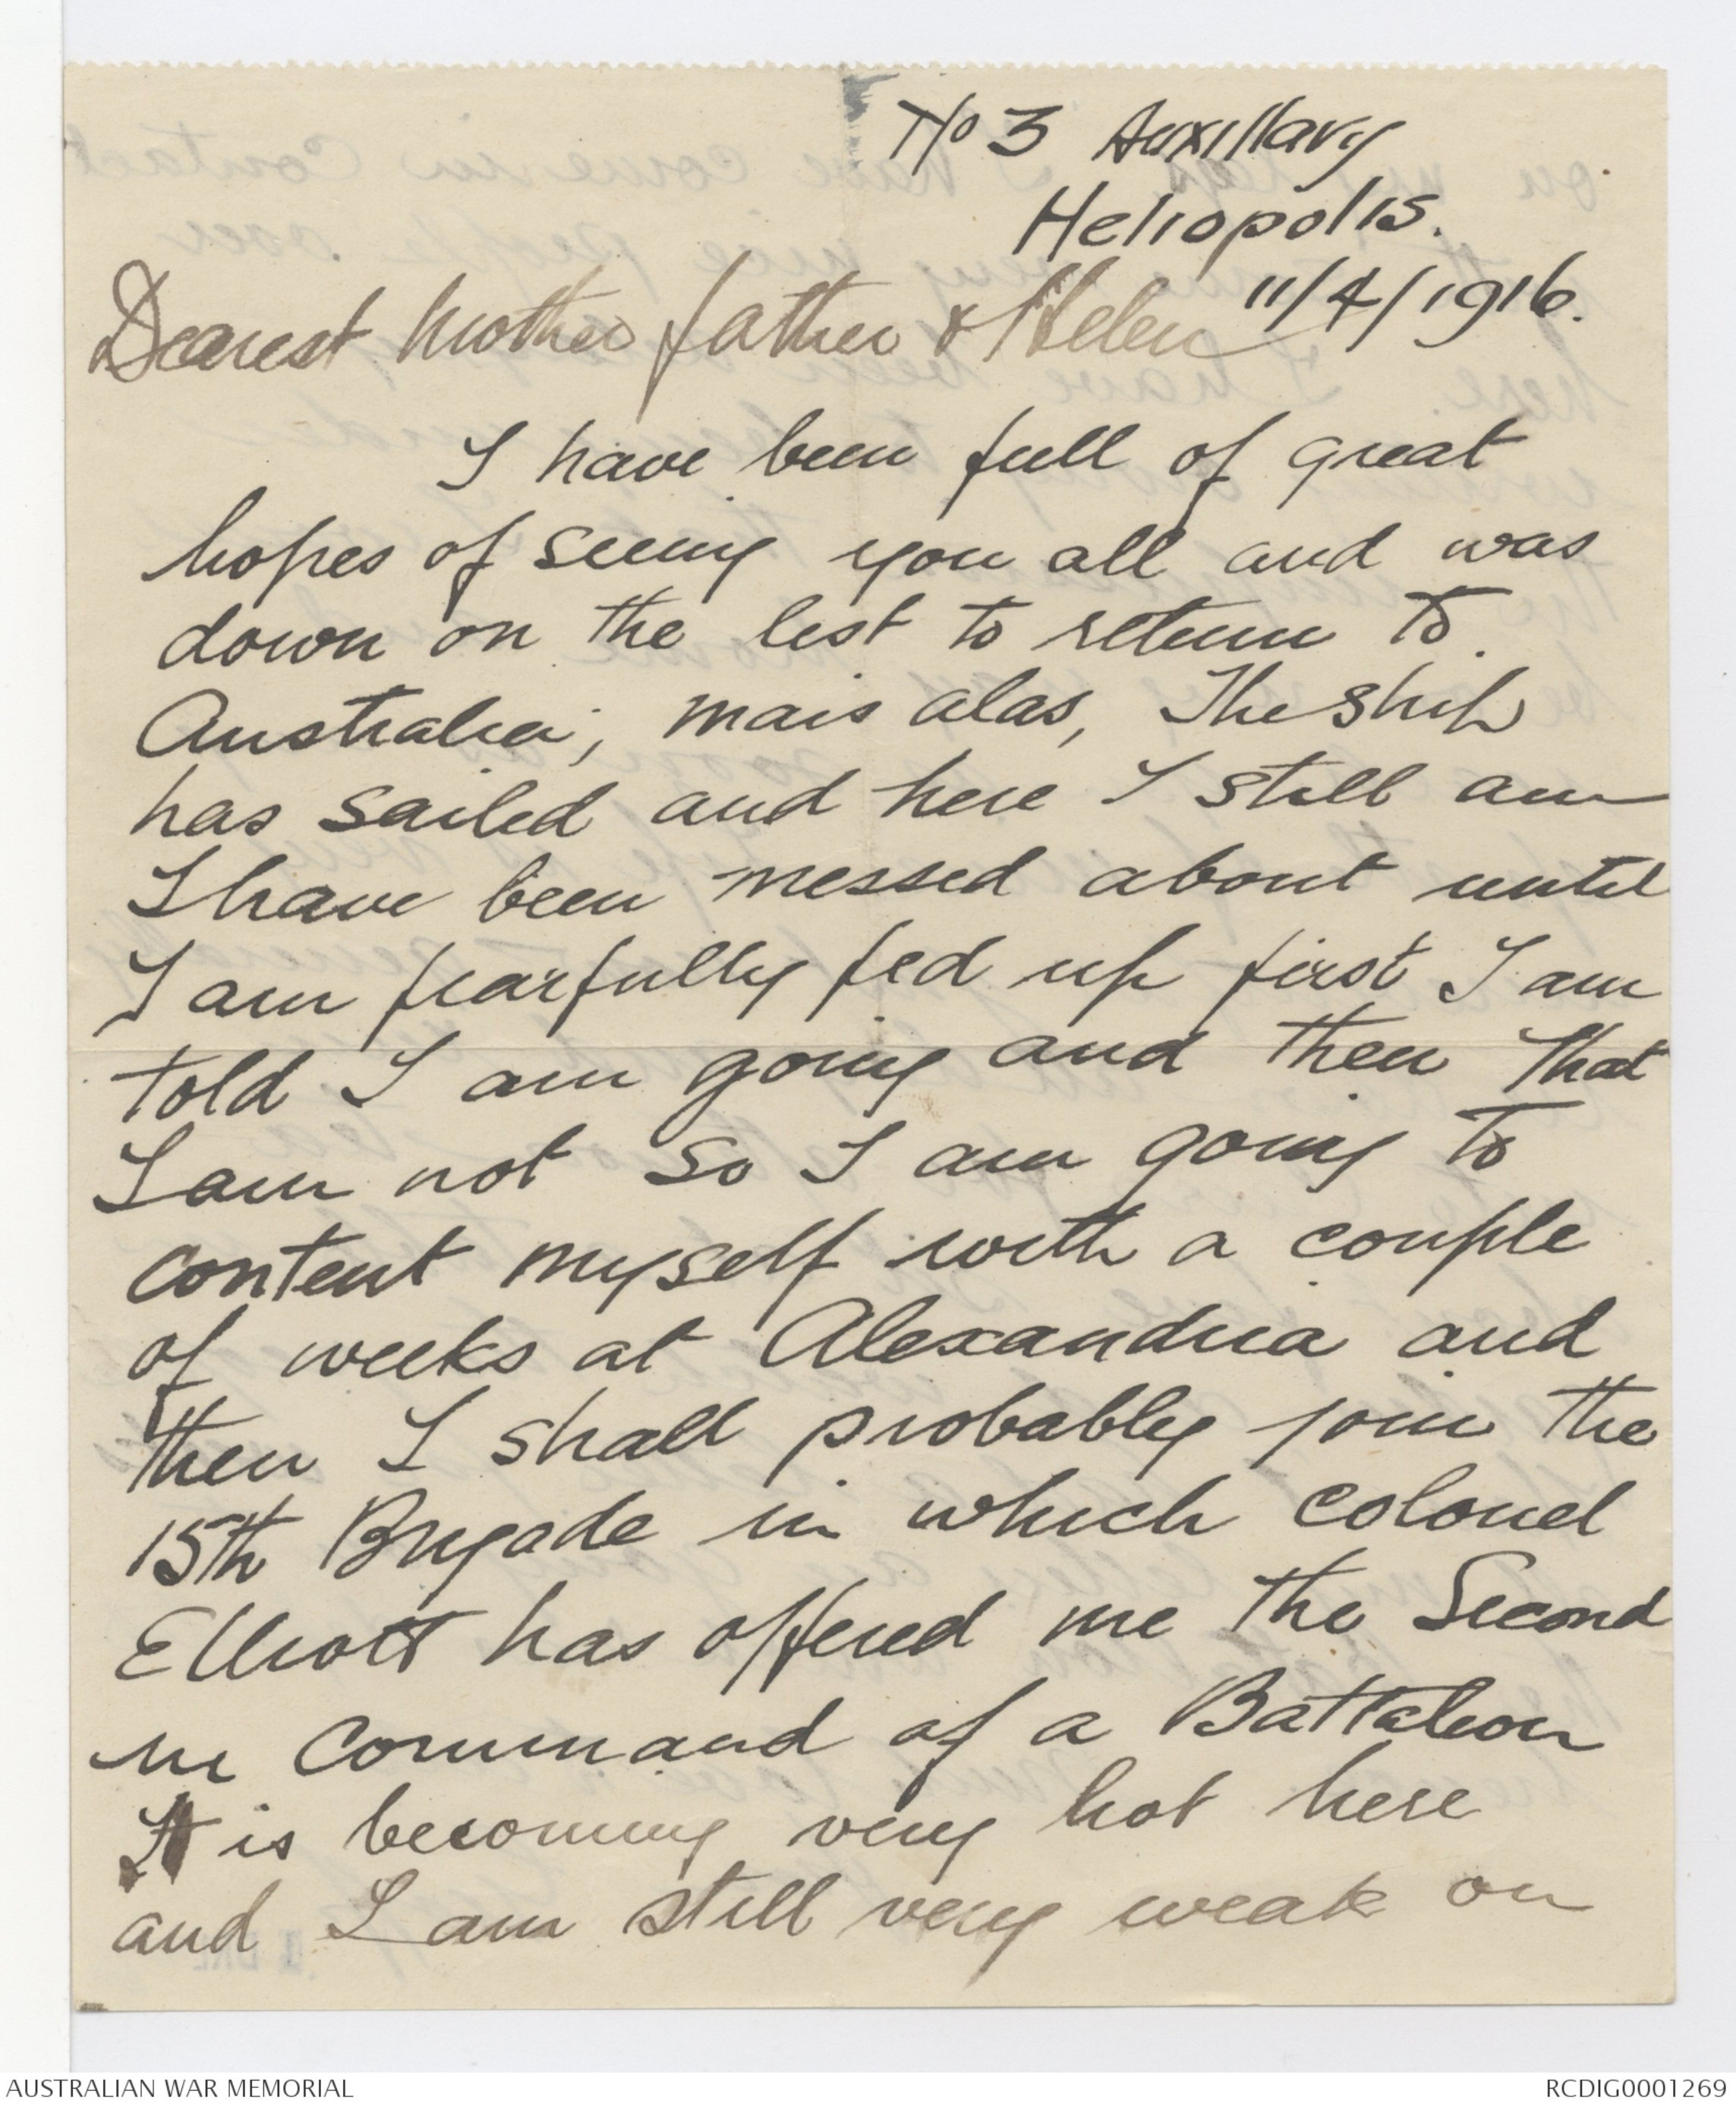 No 3 Auxillary
Heliopolis.
11/4/1916.
Dearest Mother father & Helen
I have been full of great
hopes of seeing you all and was
down on the list to return to
Australia, mais alas, The ship
has sailed and here I still am
I have been messed about until
I am fearfully fed up first I am
told I am going and then that
I am not so I am going to
content myself with a couple
of weeks at Alexandria and
then I shall probably join the
15th Brigade in which Colonel
Elliott has offered me the Second
in Command of a Battalion
It is becoming very hot here
and I am still very weak on
AUSTRALIAN WAR MEMORIAL
RCDIG0001269